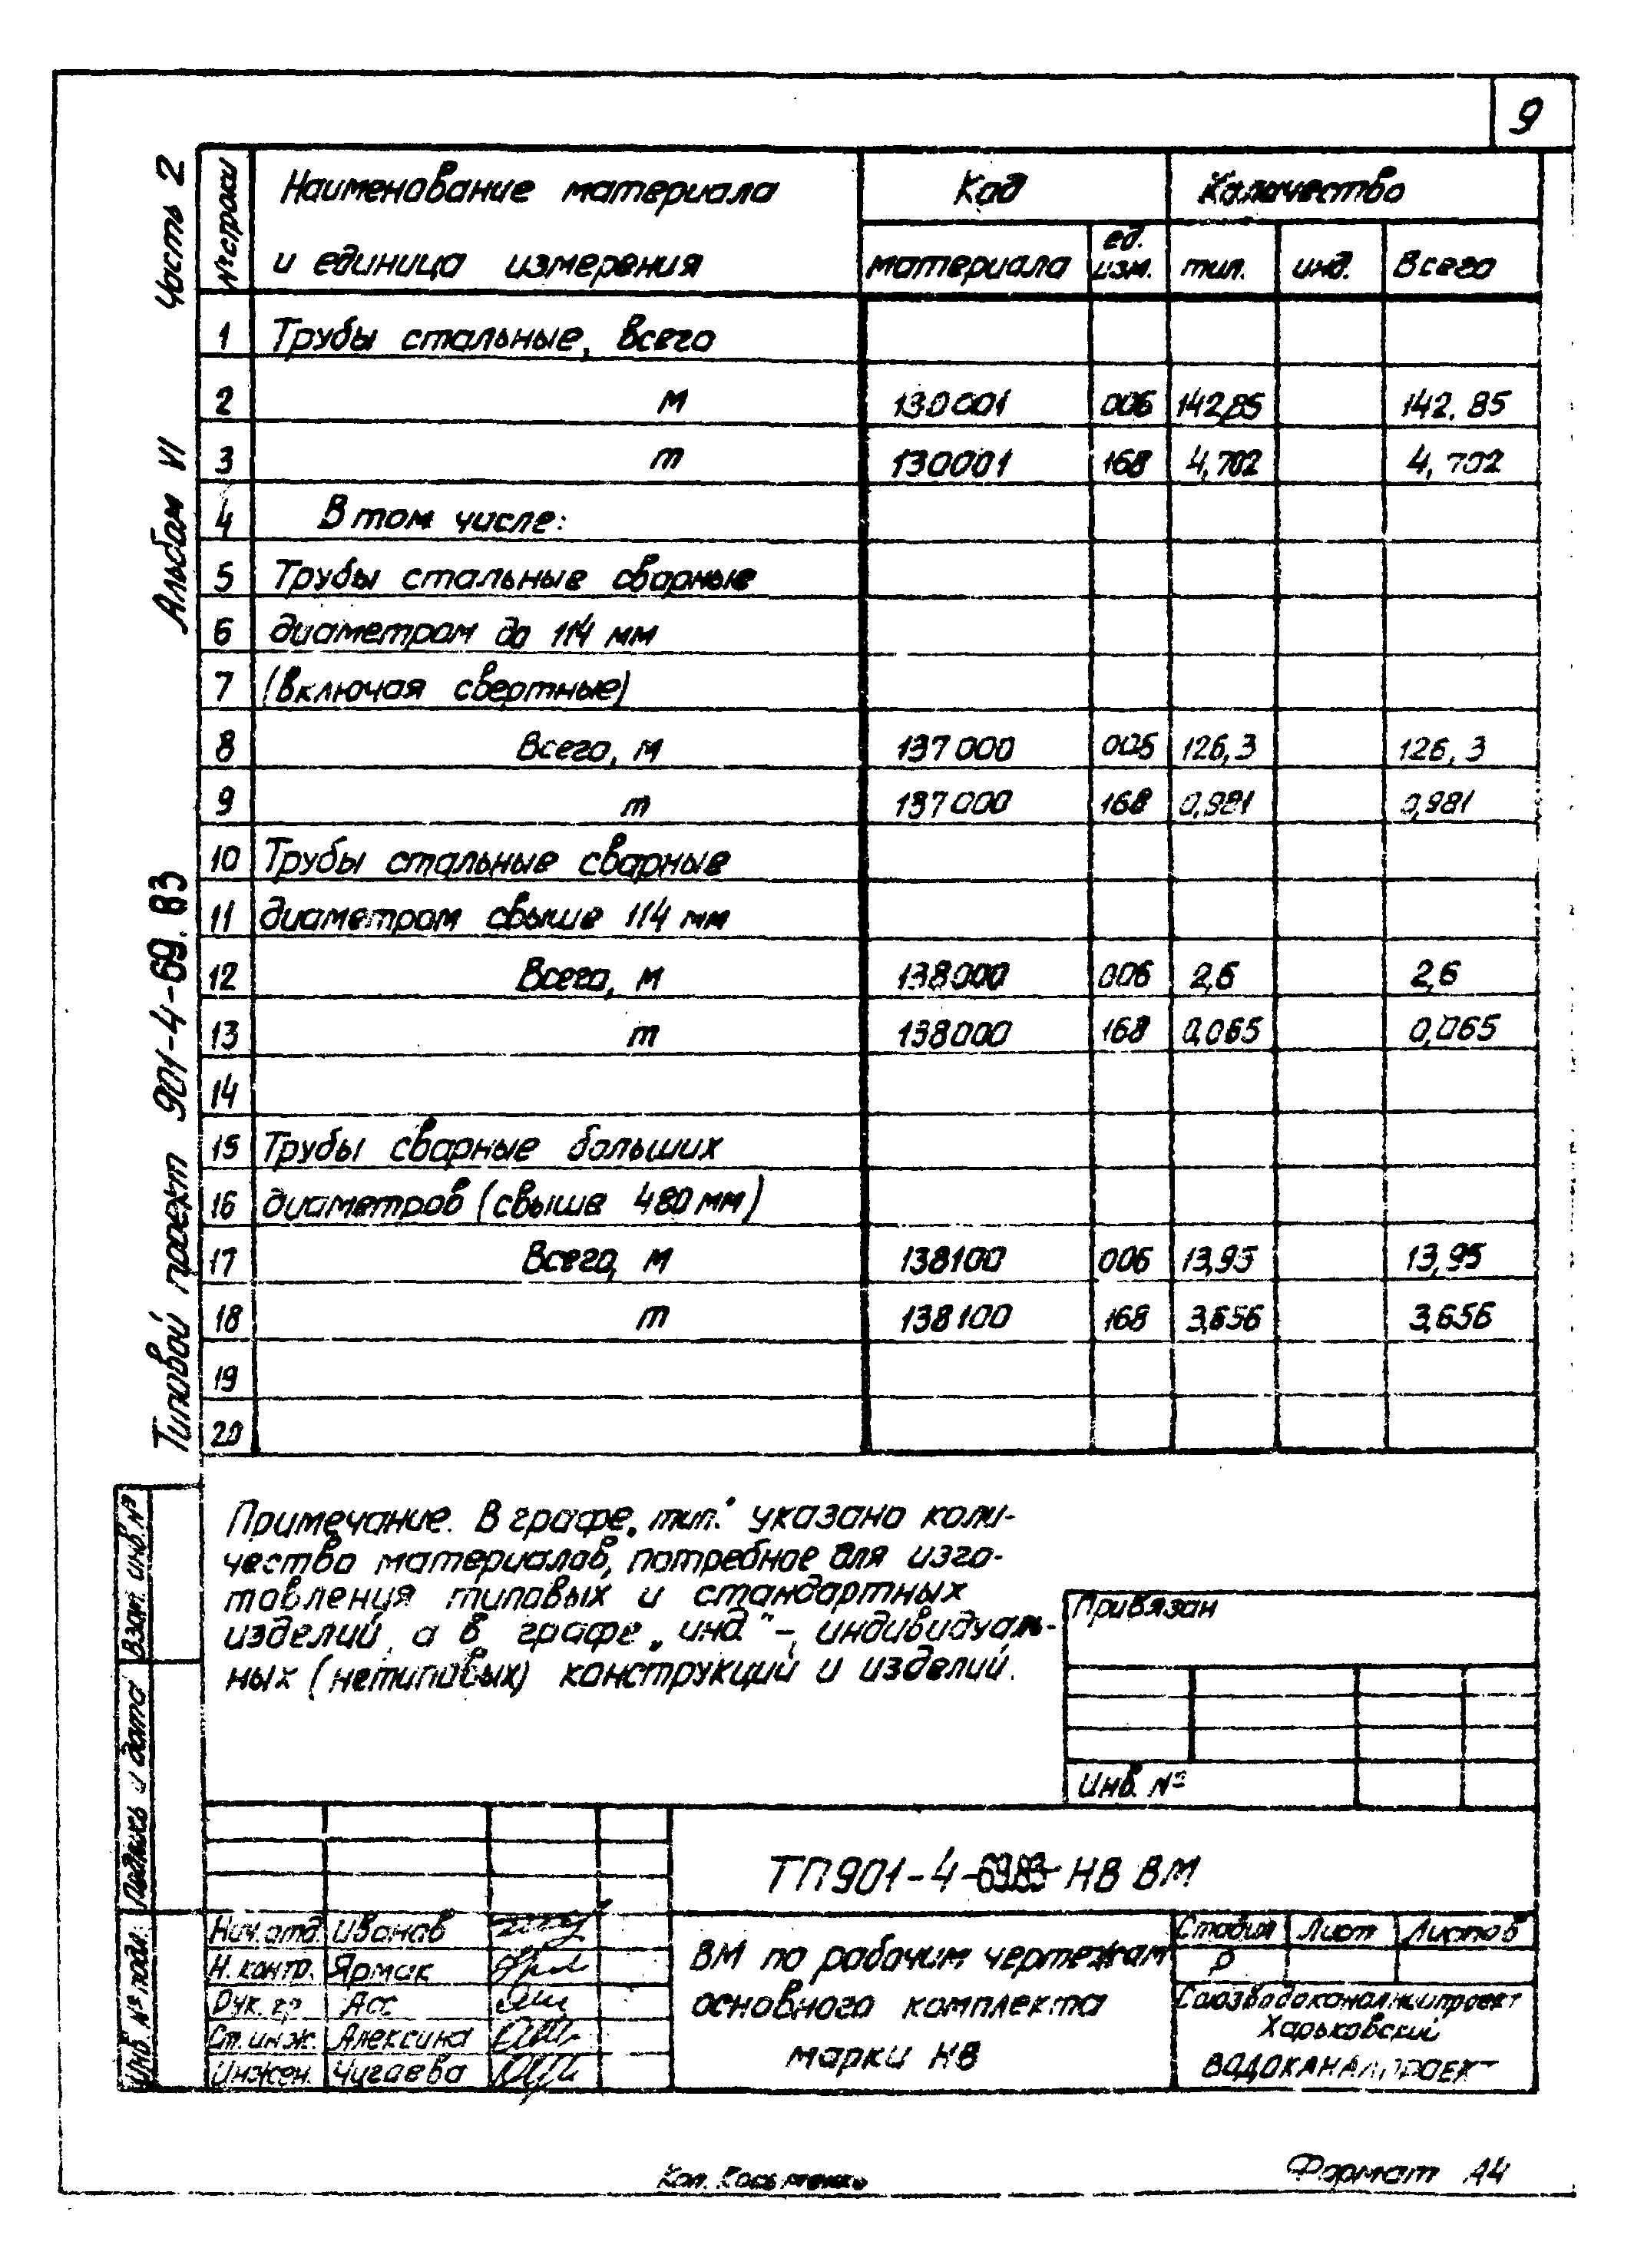 9
Типовой проект 901-4-69.83 Альбом VI Часть 2
№ строки Наименование материала и единица измерения Код Количество
материала ед. изм. тип. инд. Всего
1 Трубы стальные, всего
2 м 130001 006 142,85 142.85
3 т 130001 168 4,702 4,702
4 В том числе:
5 Трубы стальные сварные
6 диаметром до 114 мм
7 (включая свертные)
8 Всего, м 137000 006 126,3 126,3
9 т 137000 168 0,981 0,981
10 Трубы стальные сварные
11 диаметром свыше 114 мм
12 Всего, м 138000 006 2,6 2,6
13 т 138000 168 0,065 0,065
14
15 Трубы сварные больших
16 диаметров (свыше 480 мм)
17 Всего, м 138100 006 13,95 13,95
18 т 138100 168 3,656 3,656
19
20
Примечание. В графе „тип." указано коли-
чество материалов, потребное для изго-
товления типовых и стандартных
изделий, а в графе „инд" -, индивидуаль-
ных (нетиповых) конструкций и изделий.
Привязан
Инв. №
Взам. инв. №
Подпись и дата
Инв. № подл.
ТП901-4-69.83 НВ ВМ
Нач. отд. Иванов
Н. контр. Ярмак
Рук. гр. Асс
Ст. инж. Алексина
Инжен. Чугаева
ВМ по рабочим чертежам
основного комплекта
марки НВ
Стадия Лист Листов
Р
Союзводоканалниипроект
Харьковский
ВОДОКАНАЛПРОЕКТ
Формат А4